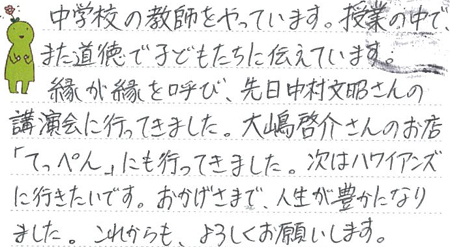 中学校の教師をやっています。授業の中で、
また道徳で子どもたちに伝えています。
縁が縁を呼び、先日中村文昭さんの
講演会に行ってきました。大嶋啓介さんのお店
「てっぺん」にも行ってきました。次はハワイアンズ
に行きたいです。おかげさまで、人生が豊かになり
ました。これからも、よろしくお願いします。